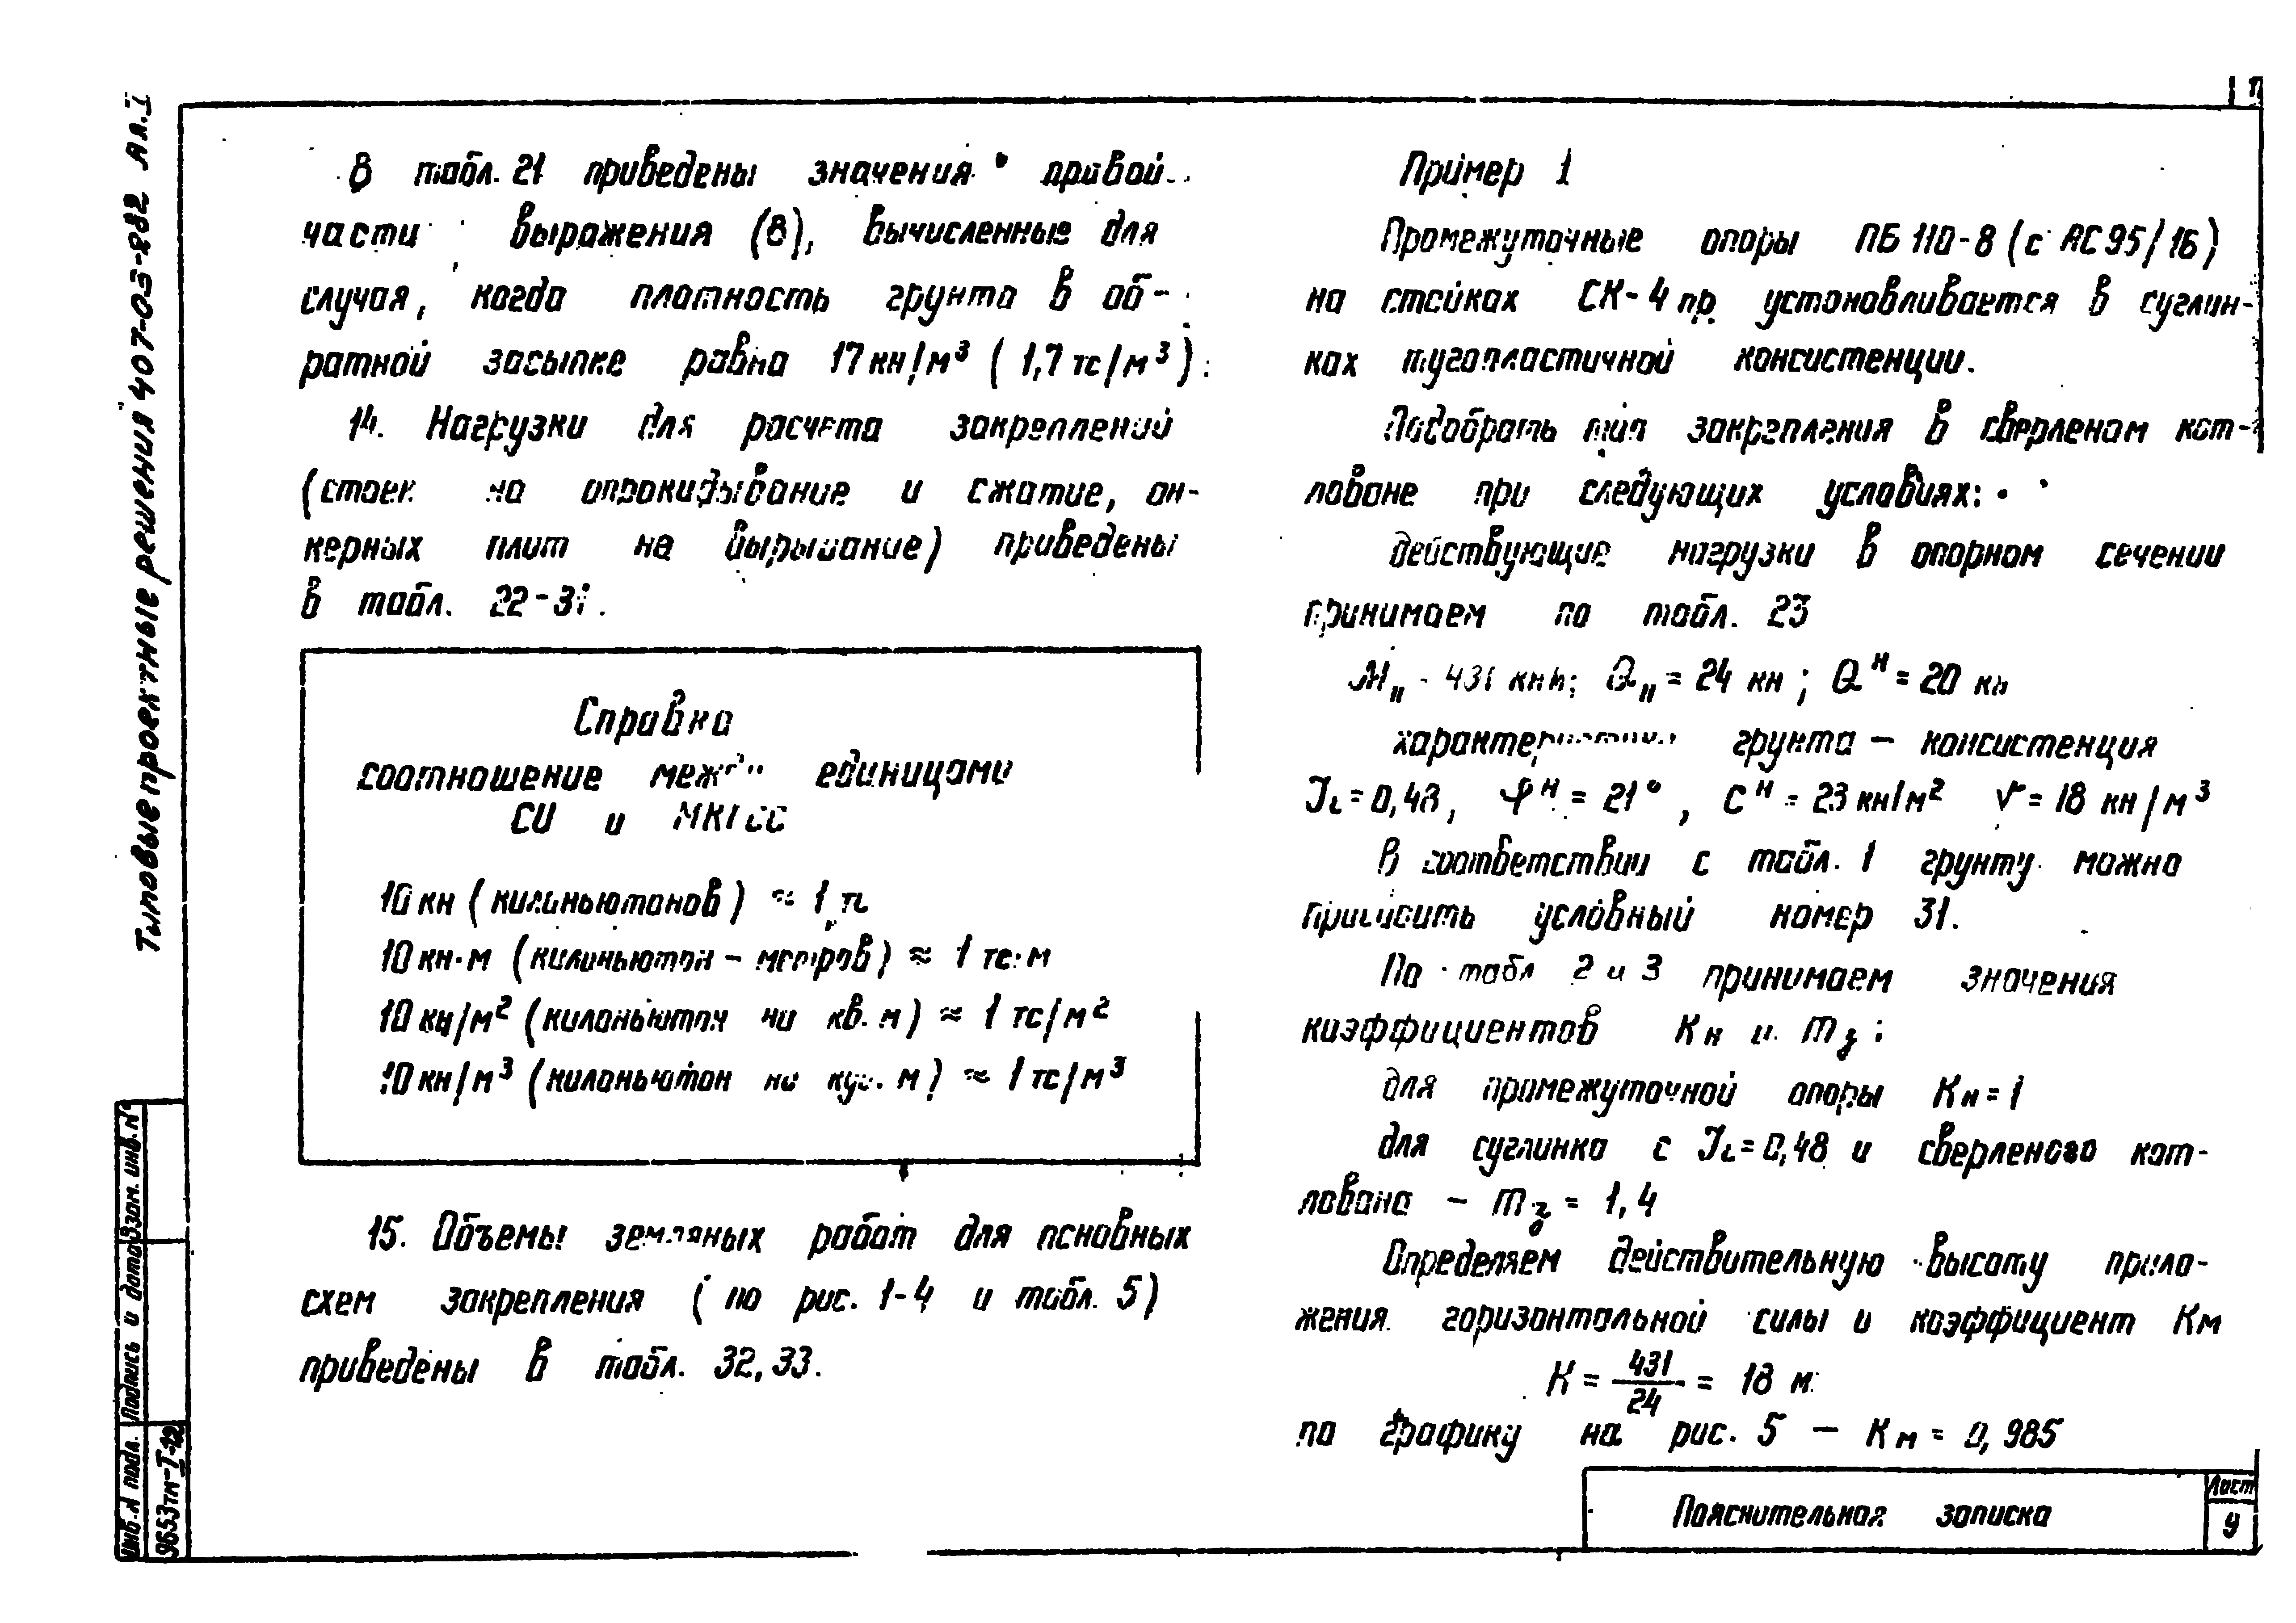 Типовые проектные решения 407-03-282 Ал. I
В табл. 21 приведены значения правой
части выражения (8), вычисленные для
случая, когда плотность грунта в об-
ратной засыпке равна 17 кн/м³ (1,7 тс/м³).
14. Нагрузки для расчета закреплений
(стоек на опрокидывание и сжатие, ан-
керных плит на вырывание) приведены
в табл. 22-31.
Справка
соотношение между единицами
СИ и МКГСС
10 кн (килоньютонов) ≈ 1 тс
10 кн·м (килоньютон - метров) ≈ 1 тс·м
10 кн/м² (килоньютон на кв. м) ≈ 1 тс/м²
10 кн/м³ (килоньютон на куб. м) ≈ 1 тс/м³
15. Объемы земляных работ для основных
схем закрепления (по рис. 1-4 и табл. 5)
приведены в табл. 32, 33.
Пример 1
Промежуточные опоры ПБ 110-8 (с АС 95/16)
на стойках СК-4 пр. устанавливается в суглин-
ках тугопластичной консистенции.
Подобрать тип закрепления в сверленом кот-
ловане при следующих условиях:
действующие нагрузки в опорном сечении
принимаем по табл. 23
Mп - 431 кнм; Qп = 24 кн; Qᴴ = 20 кн
характеристики грунта – консистенция
JL = 0,48, φᴴ = 21°, Cᴴ = 23 кн/м² γ = 18 кн/м³
В соответствии с табл. 1 грунту можно
присвоить условный номер 31.
По табл 2 и 3 принимаем значения
коэффициентов Кн и mз:
для промежуточной опоры Кн = 1
для суглинка с JL = 0,48 и сверленого кот-
лована – mз = 1,4
Определяем действительную высоту прило-
жения горизонтальной силы и коэффициент Км
H = 431/24 = 18 м
по графику на рис. 5 – Км = 0,985
Пояснительная записка
Лист
9
Инв. № подл. Подпись и дата Взам. инв. №
9653тм-I-12